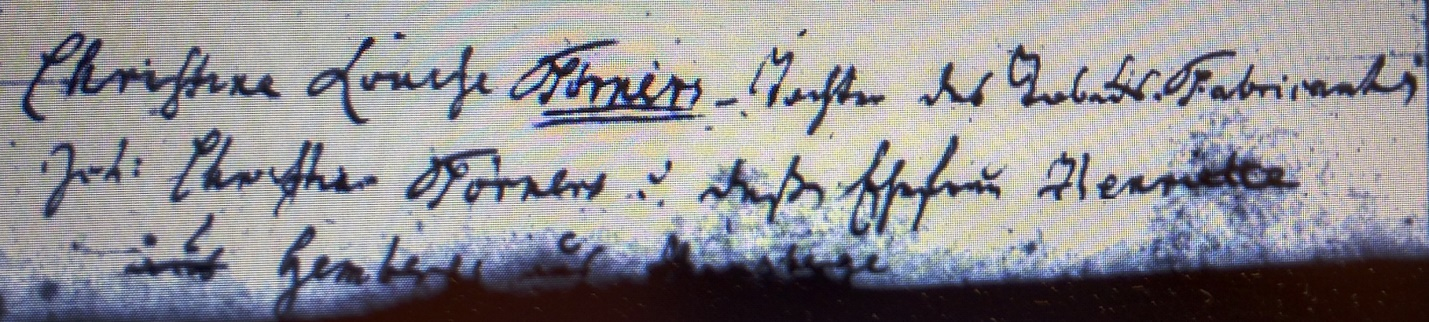 Christine Louise Förners – Tochter des Tabacks. Fabricants
Joh: Christian Förners u. deßen Ehefrau Henriette
Hemberg